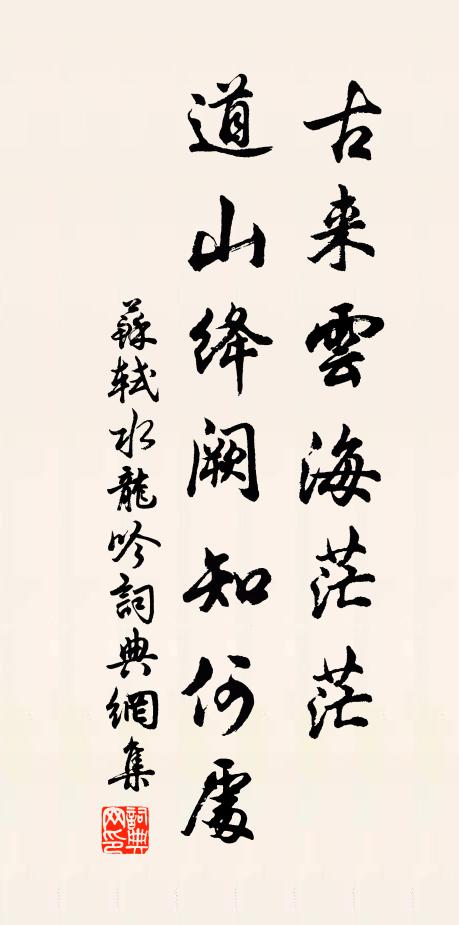 古来雲海茫茫
道山绛阙知何處
蘇軾水龍吟詞典網集
詞典
网印